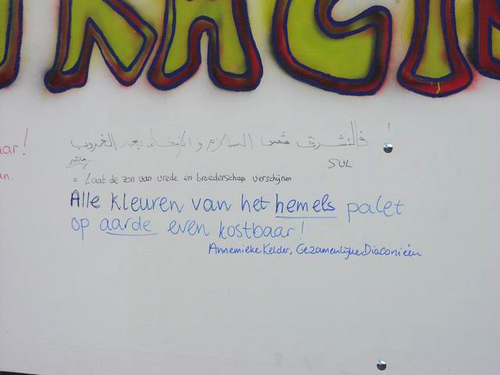 RACI
aar!
en.
فالتشرق شمس السلام و الإخاء بعد الغروب !
SUL
= Laat de zon van vrede en broederschap verschijnen
Alle kleuren van het hemels palet
op aarde even kostbaar!
Annemieke Kelder, Gezamenlijke Diaconieën